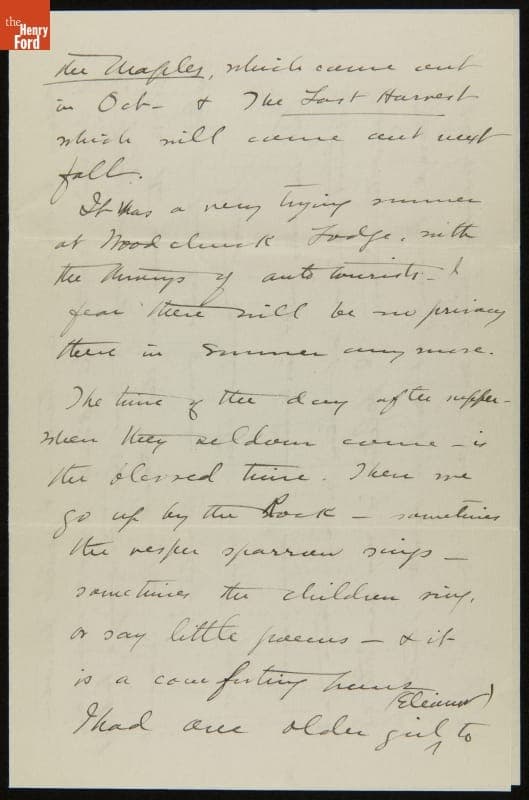 the
Henry
Ford
the Maples, which came out
in Oct- & The Last Harvest
which will come out next
fall.
It was a very trying summer
at Woodchuck Lodge, with
the throngs of auto tourists - I
fear there will be no privacy
there in summer any more.
The time of the day after supper-
when they seldom come - is
the blessed time. Then we
go up by the Rock - sometimes
the vesper sparrow sings -
sometimes the children sing,
or say little poems - & it
is a comforting hour.
(Eleanor)
I had one older girl ^ to